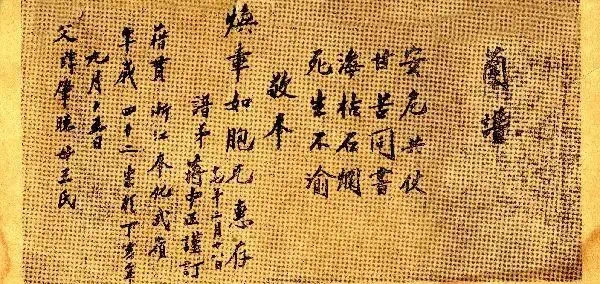 蘭譜
安危共仗
甘苦同嘗
海枯石爛
死生不渝
敬奉
煥章如胞兄惠存
譜弟 蔣中正謹訂
年二月十八日
籍貫 浙江奉化武嶺
年歲 四十二 生於丁亥年
九月十五日
父諱肇聰 母王氏